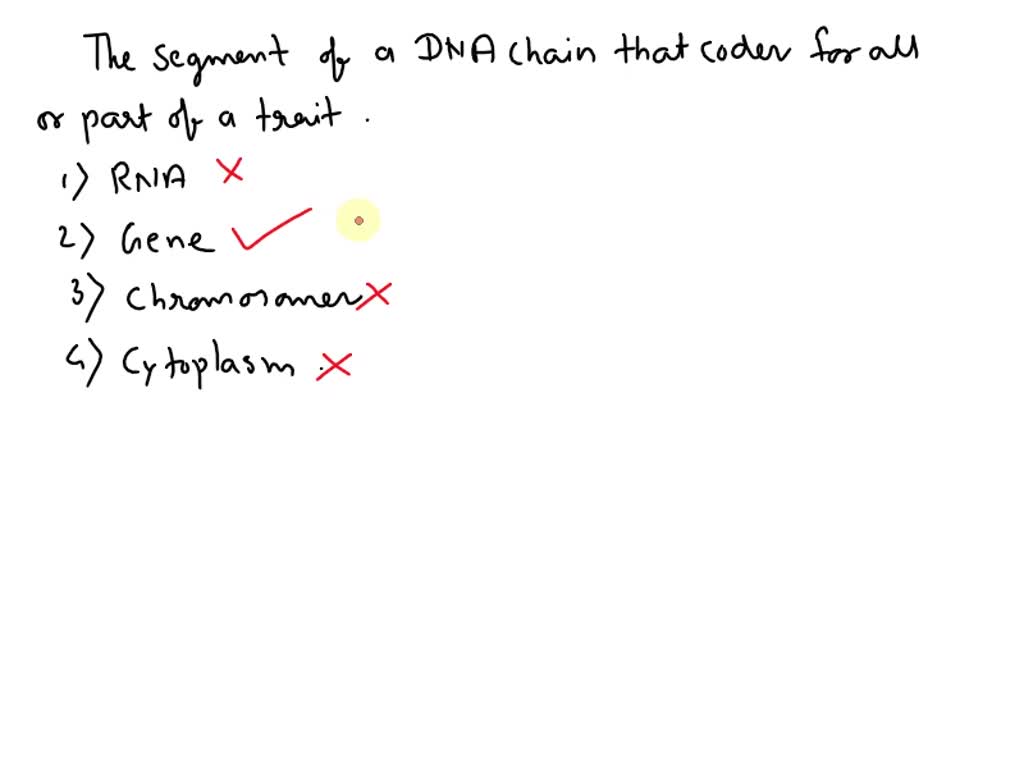 The segment of a DNA chain that coder for all
or part of a trait .
1) RNA
2) Gene
3) Chromosomer
4) Cytoplasm .